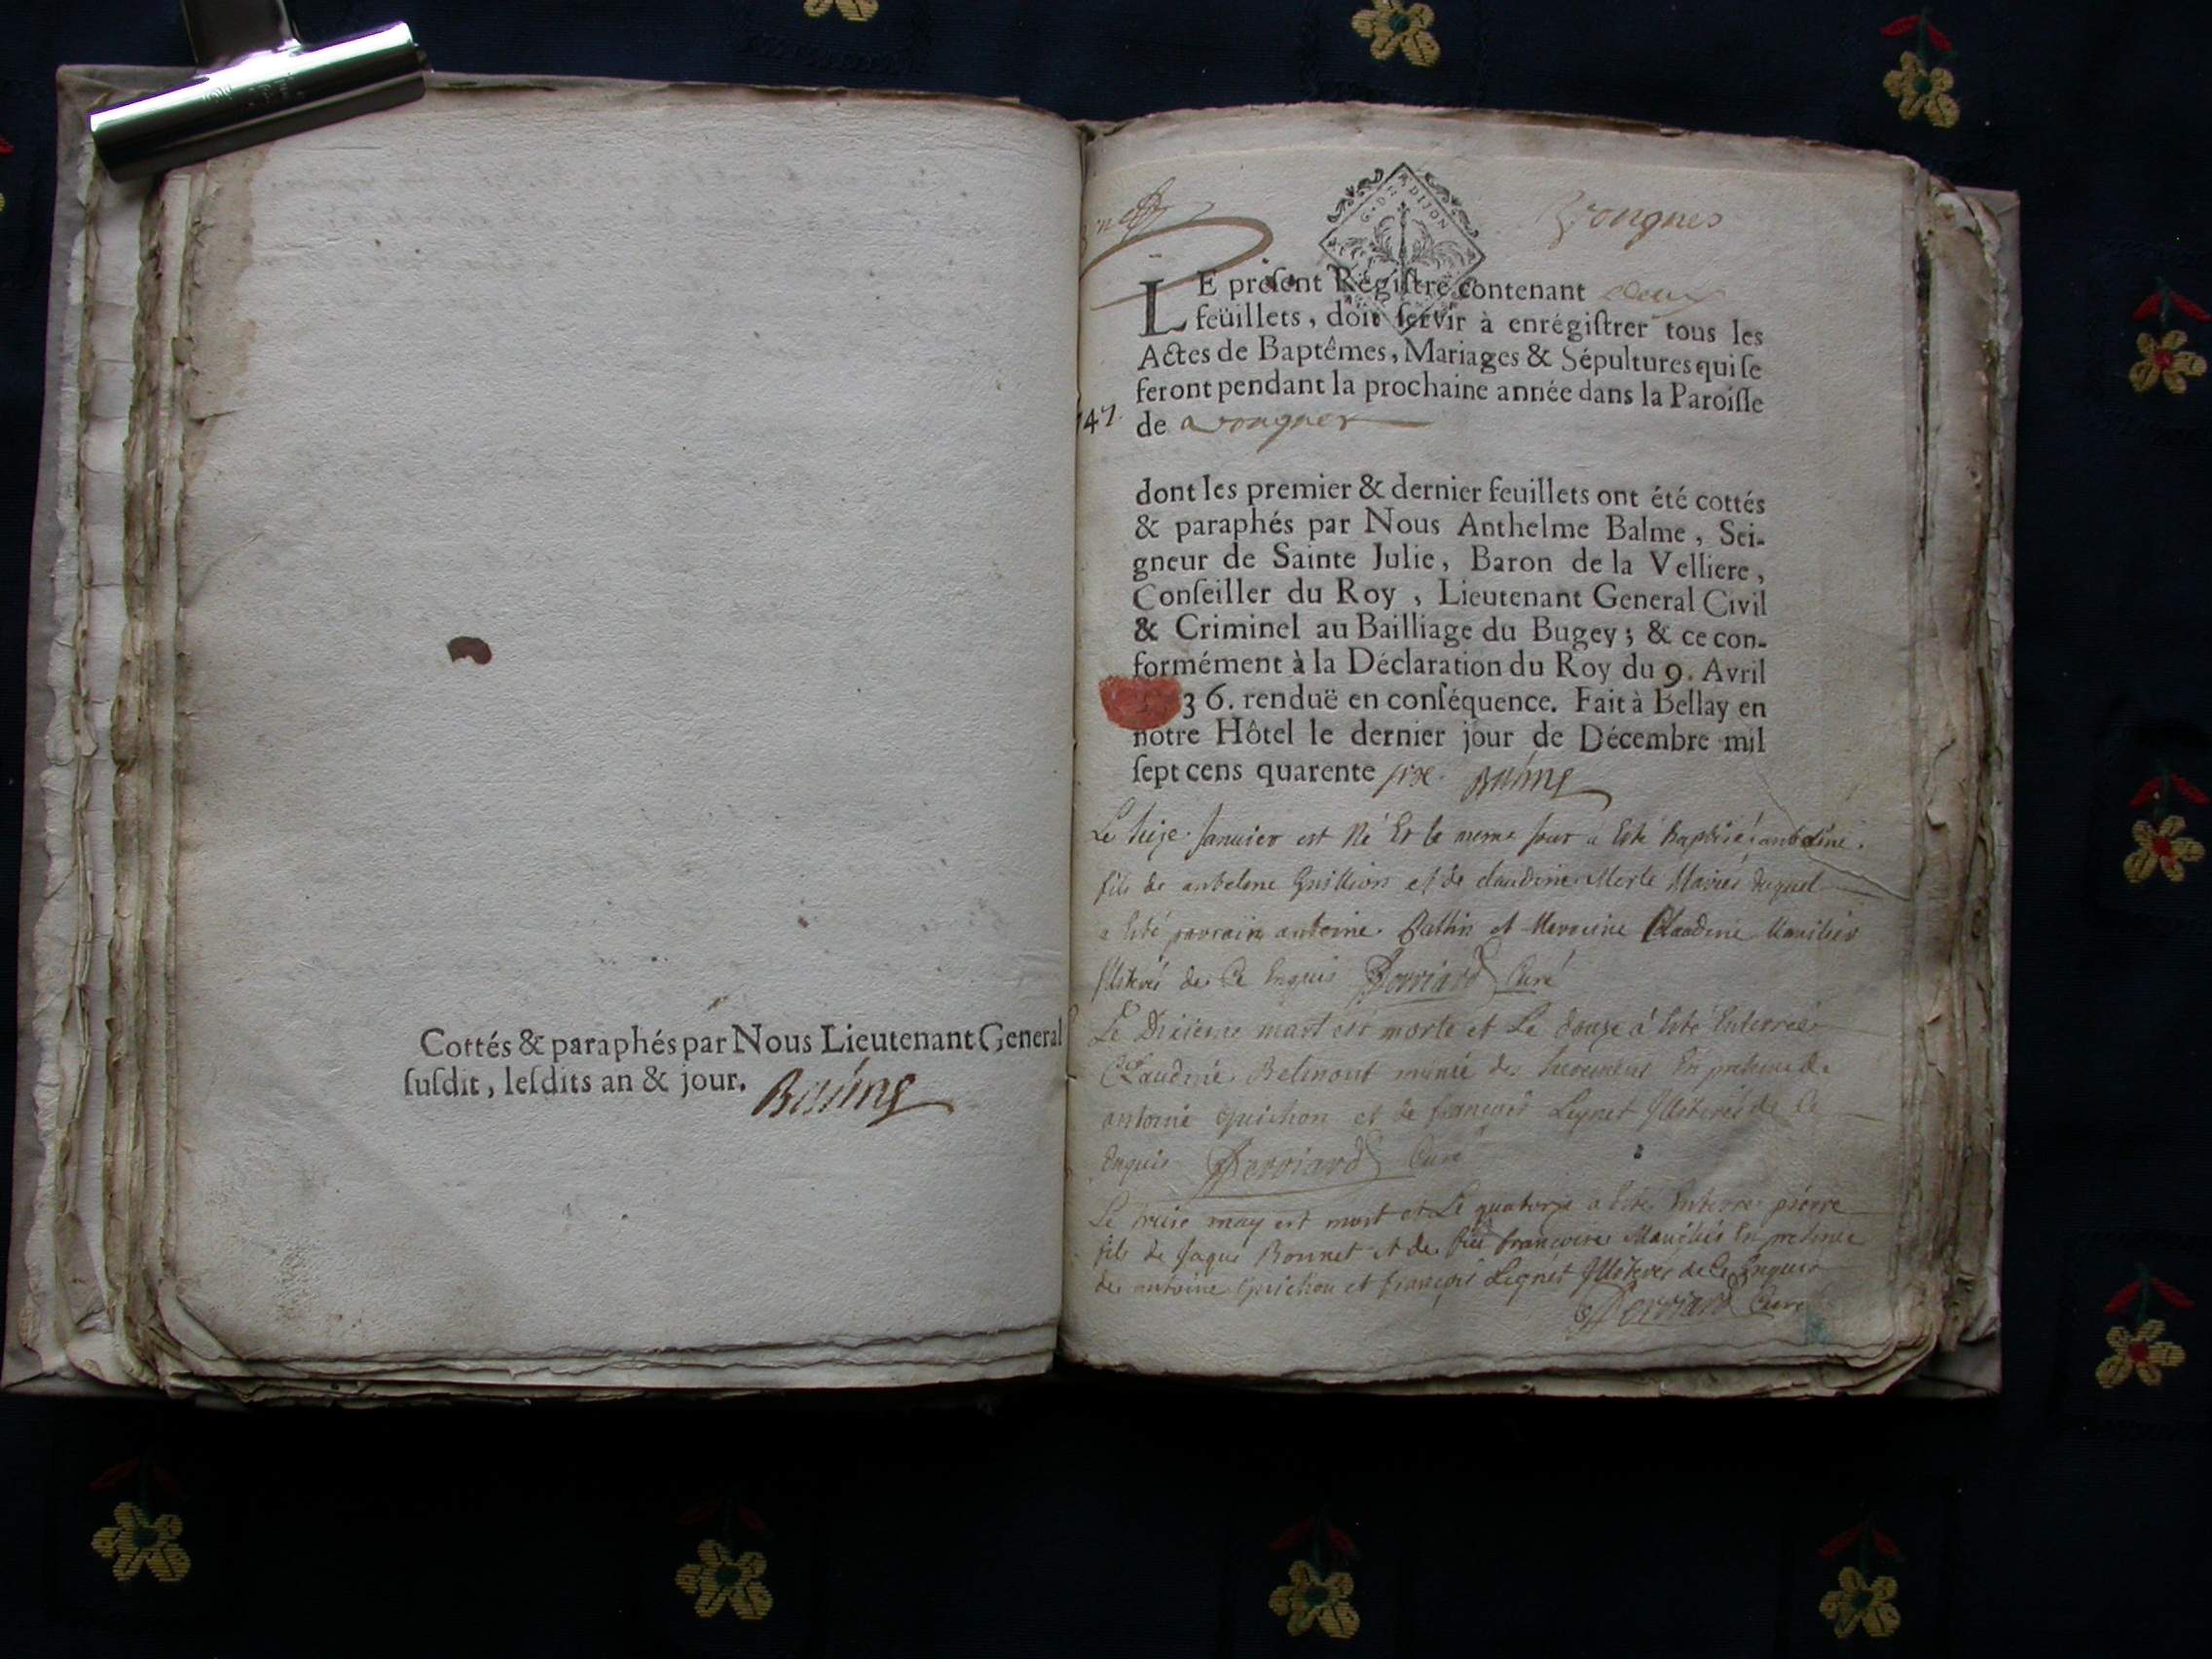 Cottés & paraphés par Nous Lieutenant General
ſuſdit, leſdits an & jour. Balme
G. DE DIJON
LE préſent Régiſtre contenant deux
feüillets, doit ſervir à enrégiſtrer tous les
Actes de Baptêmes, Mariages & Sépultures qui ſe
feront pendant la prochaine année dans la Paroiſſe
de
47.
dont les premier & dernier feuillets ont été cottés
& paraphés par Nous Anthelme Balme, Sei-
gneur de Sainte Julie, Baron de la Velliere,
Conſeiller du Roy, Lieutenant General Civil
& Criminel au Bailliage du Bugey; & ce con-
formément à la Déclaration du Roy du 9. Avril
36. renduë en conſéquence. Fait à Bellay en
notre Hôtel le dernier jour de Décembre mil
ſept cens quarente six. Balme
Le janvier est né Et le meme jour a Esté baptisé
fils de antelme et de claudine Merle Mariés duquel
a Esté parrain antoine et Marraine Claudine
Illiterés de Ce Enquis Curé
Le mars est morte et Le douze a Esté Enterrée
Claudine Belmont munie des sacremens En presence de
antoine guichon et de françois Illiterés de Ce
Enquis Curé
Le may est mort et Le quatorze a Esté Enterré pierre
fils de Jaque Bonnet et de françoise En presence
de antoine guichon et françois Illiterés de Ce Enquis
Curé